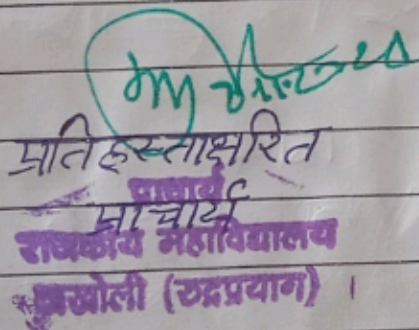 प्रतिहस्ताक्षरित
प्राचार्य
प्राचार्य
राजकीय महाविद्यालय
जखोली (रुद्रप्रयाग) ।